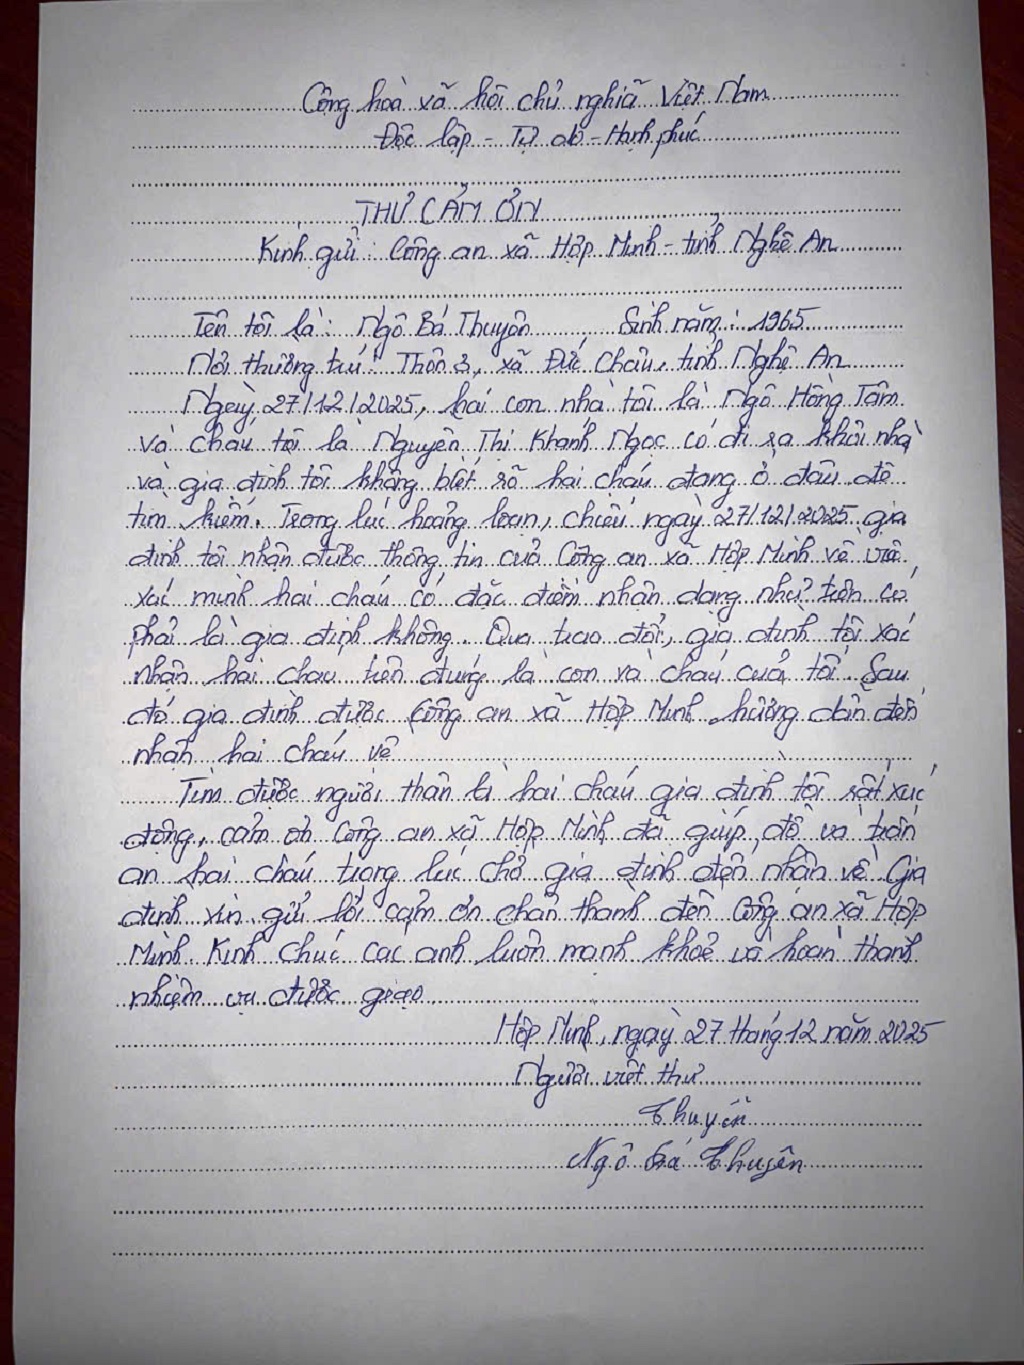 Cộng hoà xã hội chủ nghĩa Việt Nam
Độc lập - Tự do - Hạnh phúc
THƯ CẢM ƠN
Kính gửi: Công an xã Hợp Minh - tỉnh Nghệ An
Tên tôi là: Ngô Bá Thuyên Sinh năm: 1965
Nơi thường trú: Thôn 3, xã Đức Châu, tỉnh Nghệ An
Ngày 27/12/2025, hai con nhà tôi là Ngô Hồng Tâm
và cháu tôi là Nguyễn Thị Khánh Ngọc có đi ra khỏi nhà
và gia đình tôi không biết rõ hai cháu đang ở đâu để
tìm kiếm. Trong lúc hoảng loạn, chiều ngày 27/12/2025 gia
đình tôi nhận được thông tin của Công an xã Hợp Minh về việc
xác minh hai cháu có đặc điểm nhận dạng như trên có
phải là gia đình không. Qua trao đổi, gia đình tôi xác
nhận hai cháu trên đúng là con và cháu của tôi. Sau
đó gia đình được Công an xã Hợp Minh hướng dẫn đến
nhận hai cháu về
Tìm được người thân là hai cháu gia đình tôi rất xúc
động, cảm ơn Công an xã Hợp Minh đã giúp đỡ và trấn
an hai cháu trong lúc chờ gia đình đến nhận về. Gia
đình xin gửi lời cảm ơn chân thành đến Công an xã Hợp
Minh. Kính chúc các anh luôn mạnh khoẻ và hoàn thành
nhiệm vụ được giao
Hợp Minh, ngày 27 tháng 12 năm 2025
Người viết thư
Thuyên
Ngô Bá Thuyên